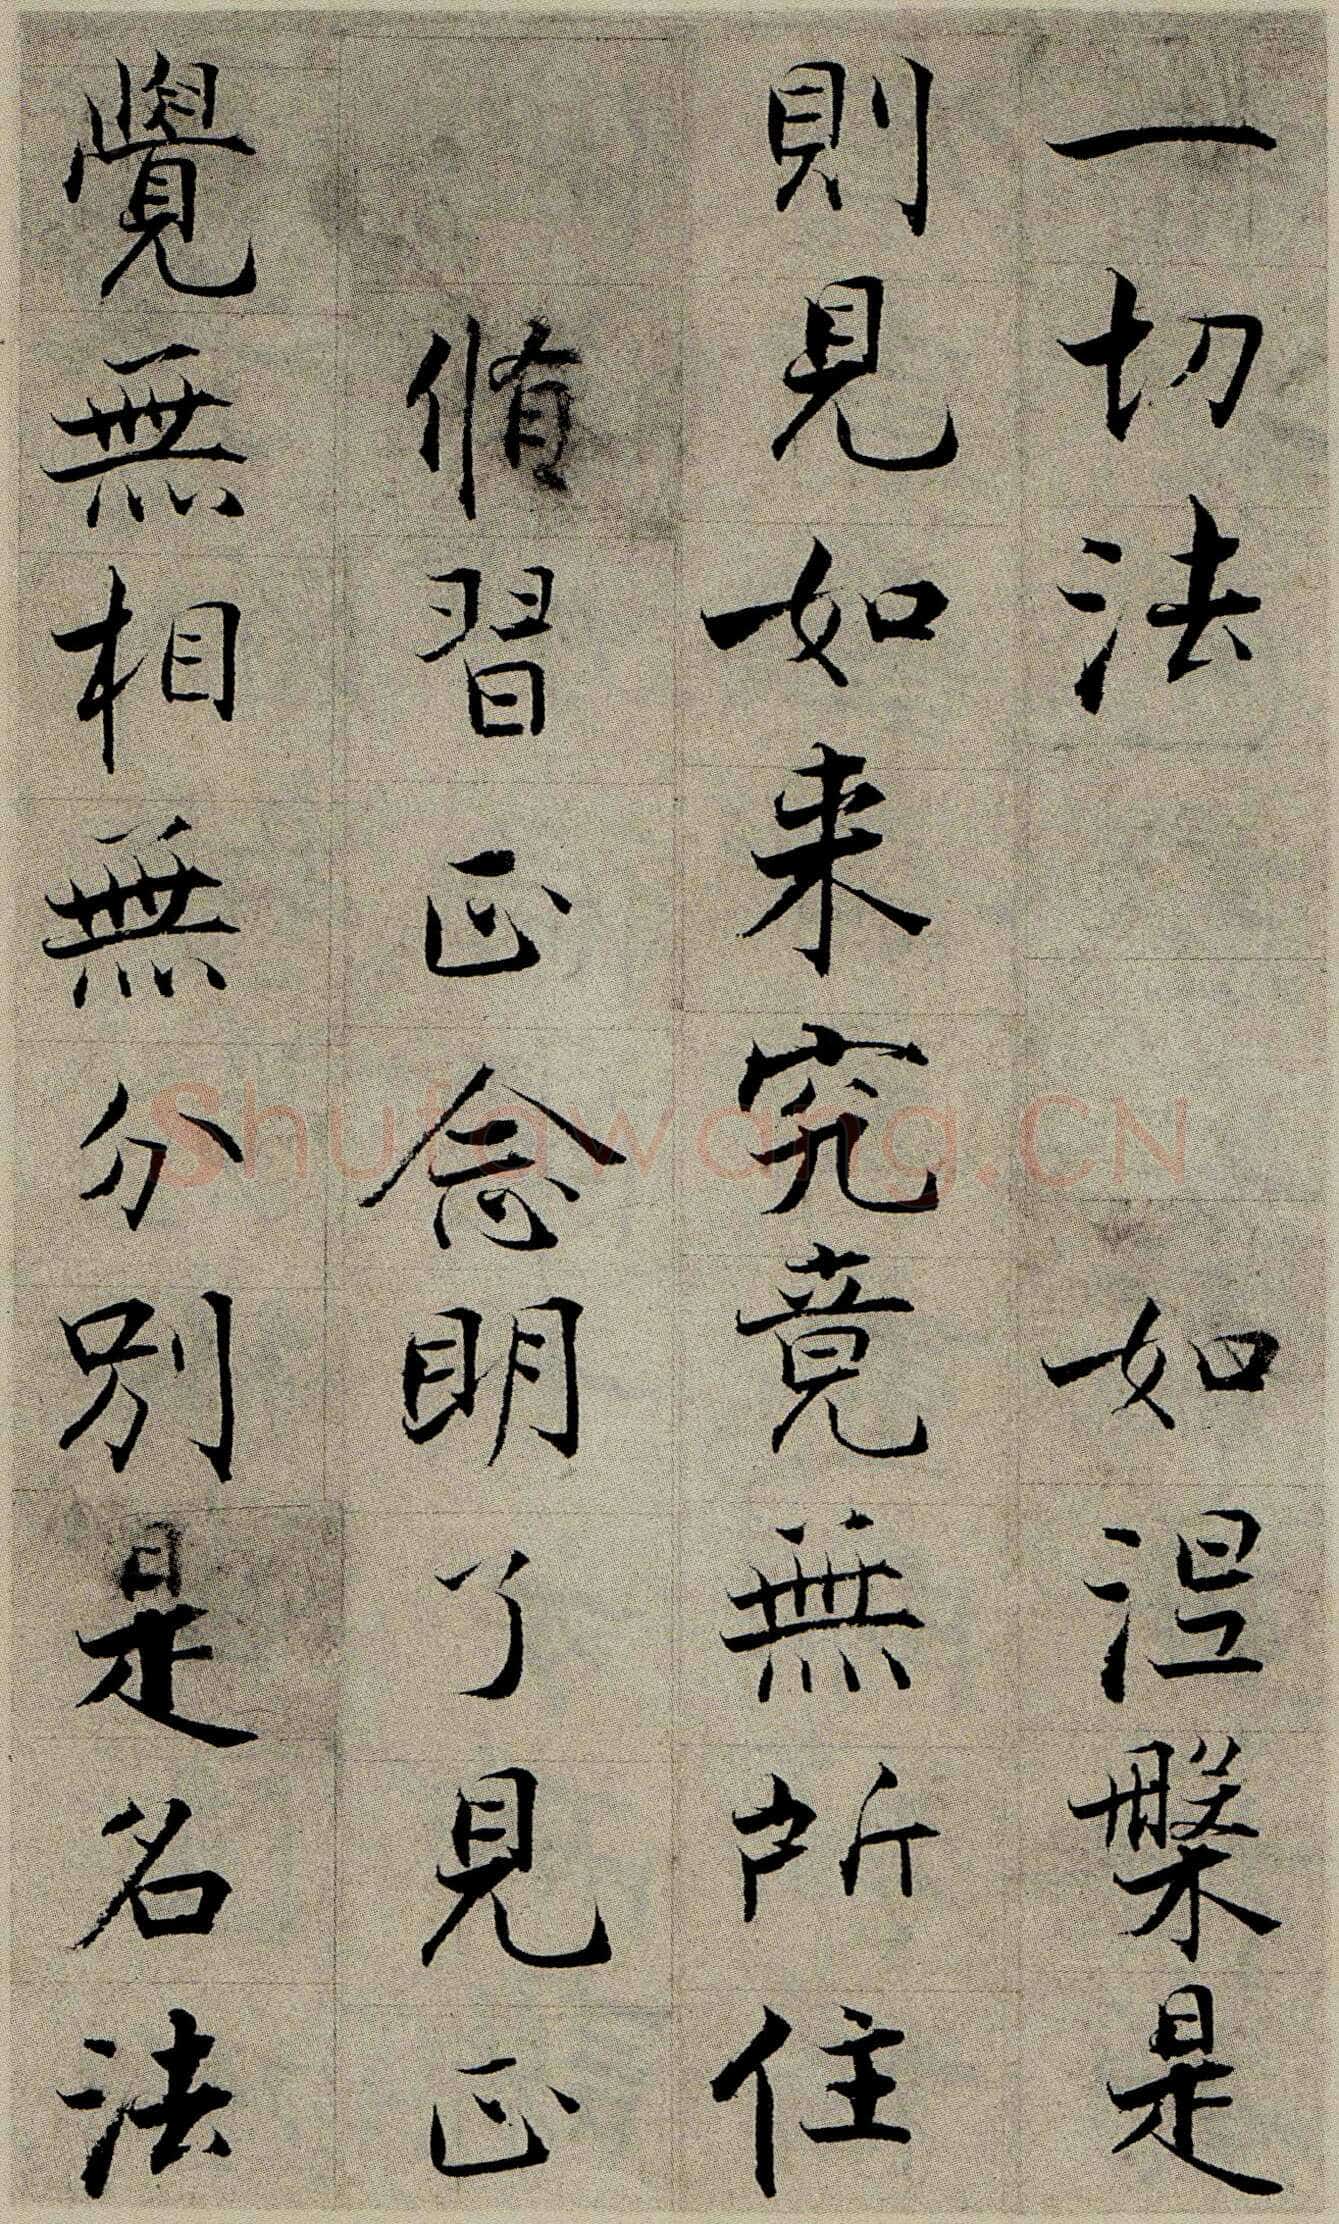 一切法 如涅槃是
則見如来究竟無所住
脩習正念明了見正
覺無相無分別是名法
Shufawang.CN